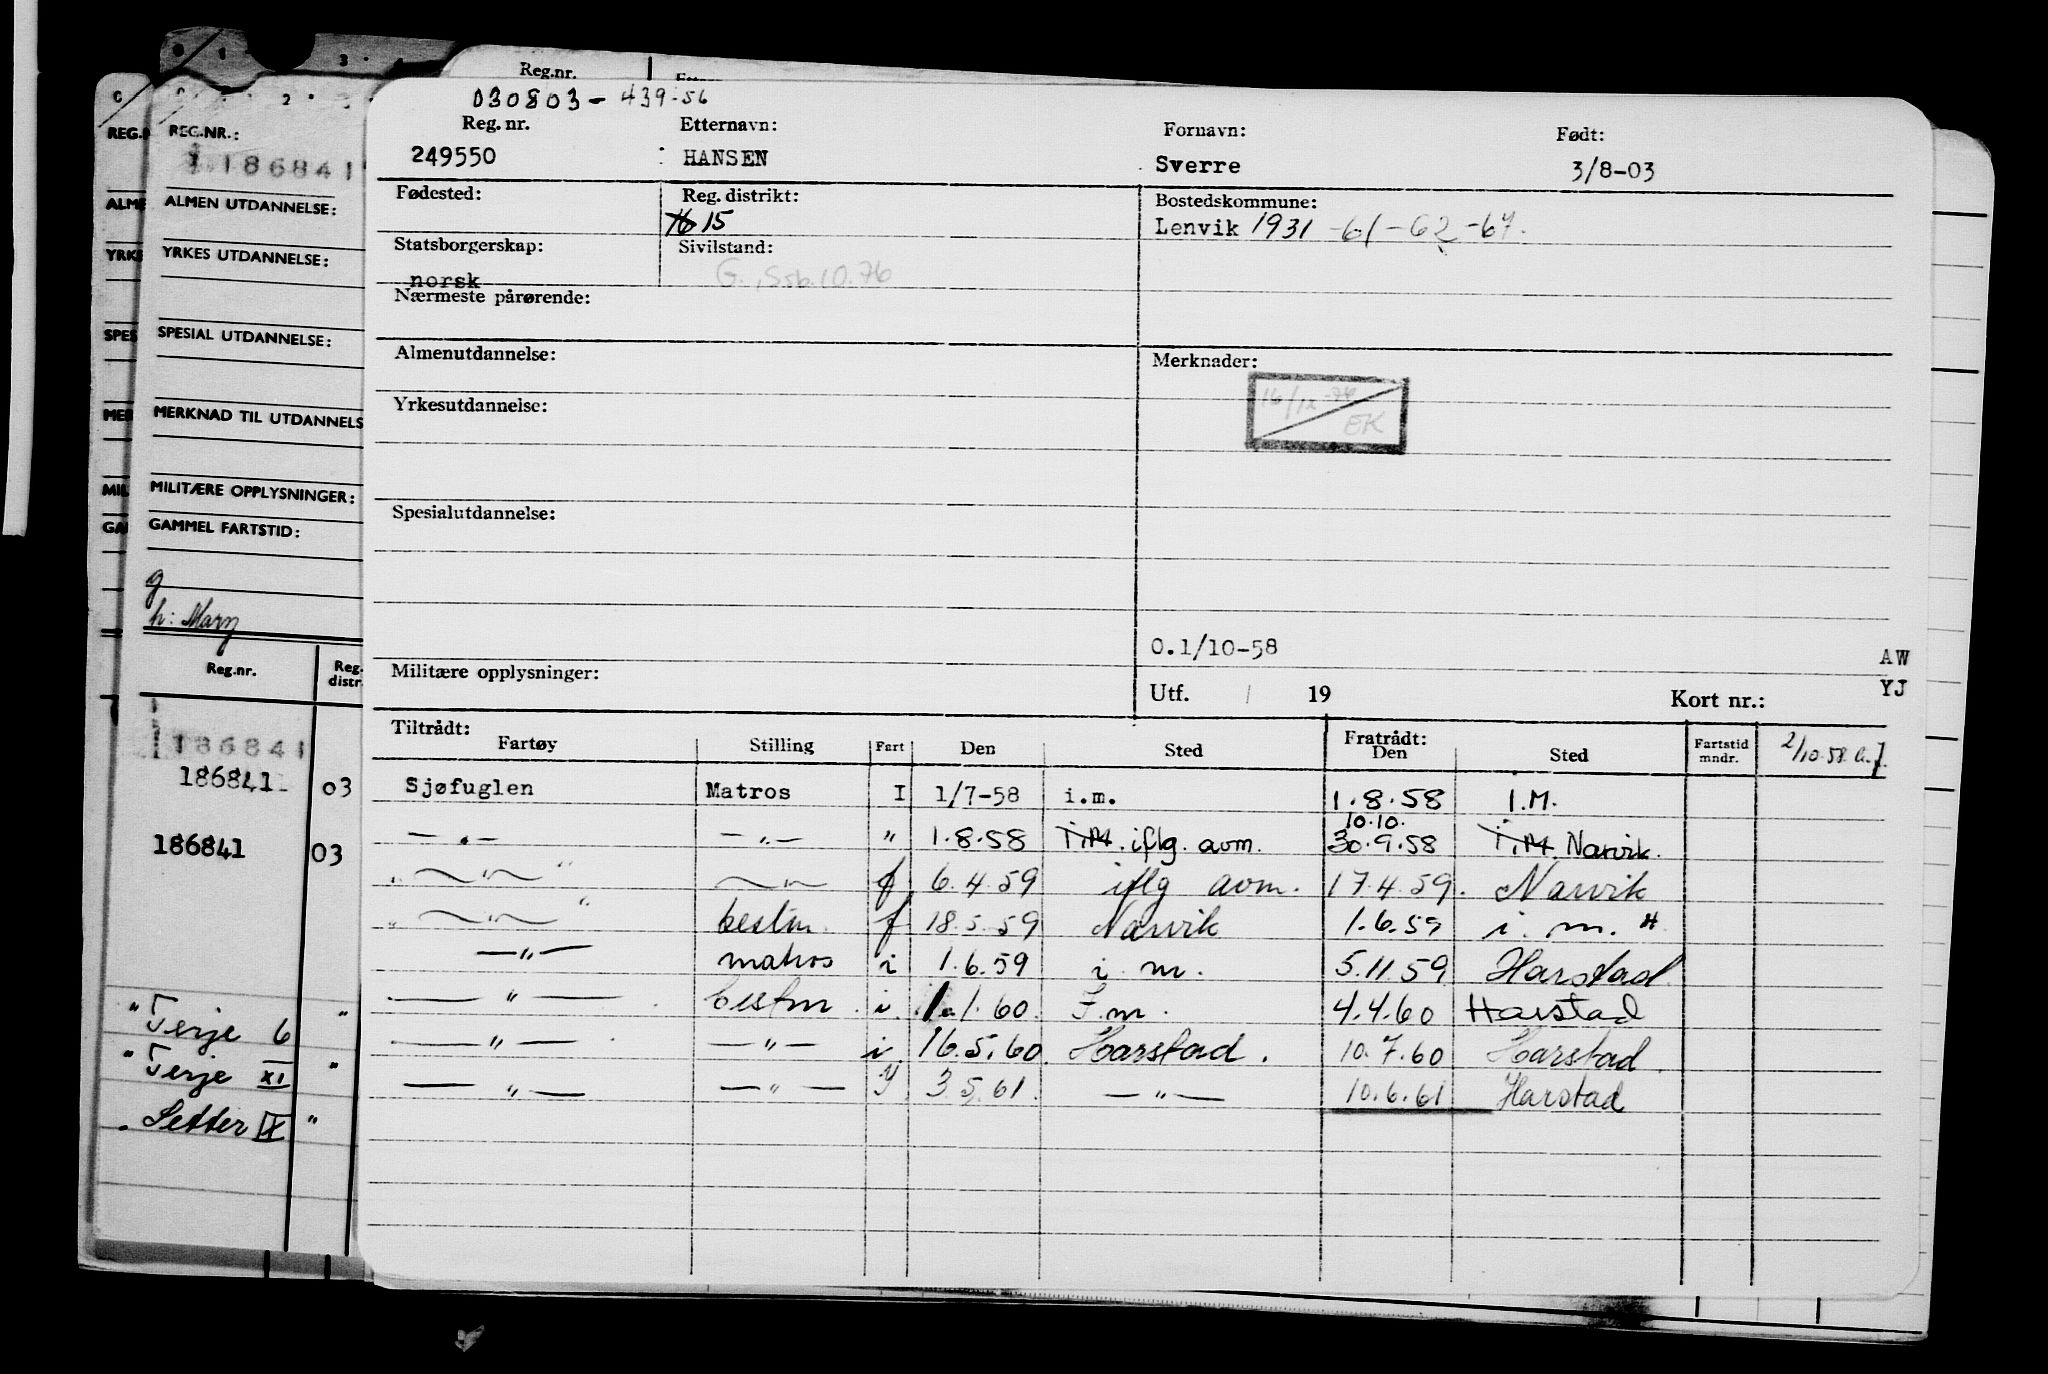 0 1 3 4
Reg.nr.
030803-439-56
Reg. nr. Etternavn: Fornavn: Født:
249550 HANSEN Sverre 3/8-03
Fødested: Reg. distrikt: Bostedskommune:
15 Lenvik 1931 -61-62-67.
Statsborgerskap: Sivilstand:
norsk G., Ssb.10.76
Nærmeste pårørende:
Almenutdannelse: Merknader:
EK
Yrkesutdannelse:
Spesialutdannelse:
O.1/10-58
AW
Militære opplysninger:
Utf. / 19 Kort nr.: YJ
Tiltrådt: Fratrådt:
Fartøy Stilling Fart Den Sted Den Sted Fartstid mndr. 2/10.58
Sjøfuglen Matros I 1/7-58 i.m. 1.8.58 I.M.
10.10.
— " — — " — " 1.8.58 I.M. iflg. avm. 30.9.58 I.M. Narvik.
" — " — " — " — f 6.4.59 iflg avm. 17.4.59. Narvik
" — " — " bestm. f 18.5.59 Narvik 1.6.59 i. m. H
— " — matros i 1.6.59 i m. 5.11.59 Harstad
— " — bestm i. 1.1.60. I.m. 4.4.60 Harstad
— " — — " — i. 16.5.60. Harstad. 10.7.60 Harstad.
— " — — " — Y 3.5.61. — " — 10.6.61 Harstad
REG.NR.:
186841
ALMEN UTDANNELSE:
YRKES UTDANNELSE:
SPESIAL UTDANNELSE:
MERKNAD TIL UTDANNELS
MILITÆRE OPPLYSNINGER:
GAMMEL FARTSTID:
g
h: Mary
Reg.nr. Reg. distr.
186841
186841 03
186841 03
" Terje 6 "
" Terje XI "
. Setter IX "
REG.
ALME
YRKE
SPES
MER
MIL
GA